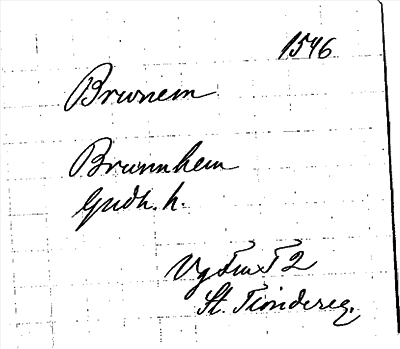 1546
Brunem
Brunnhem
Gudh. h.
Vg Tu T 2
St. Tiondereg.